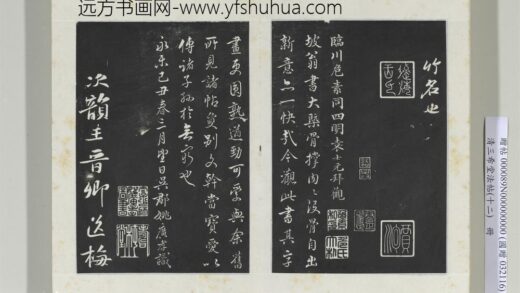 远方书画网-www.yfshuhua.com
竹名也
臨川危素同四明袁士元拜觀
坡翁書大槩骨撐肉〻沒骨自出
新意亦一快哉今觀此書其字
畫更圓熟遒勁可愛與余舊
所見諸帖敻别文幹當寶愛以
傳諸子孫於無窮也
永樂己丑春二月望日吳郡姚廣孝識
次韻王晉卿送梅
贈帖 000089N000000000 (國贈 032116)
清三希堂法帖(十二) 冊